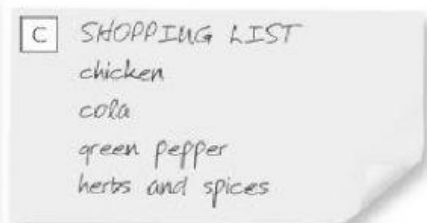 C SHOPPING LIST
chicken
cola
green pepper
herbs and spices